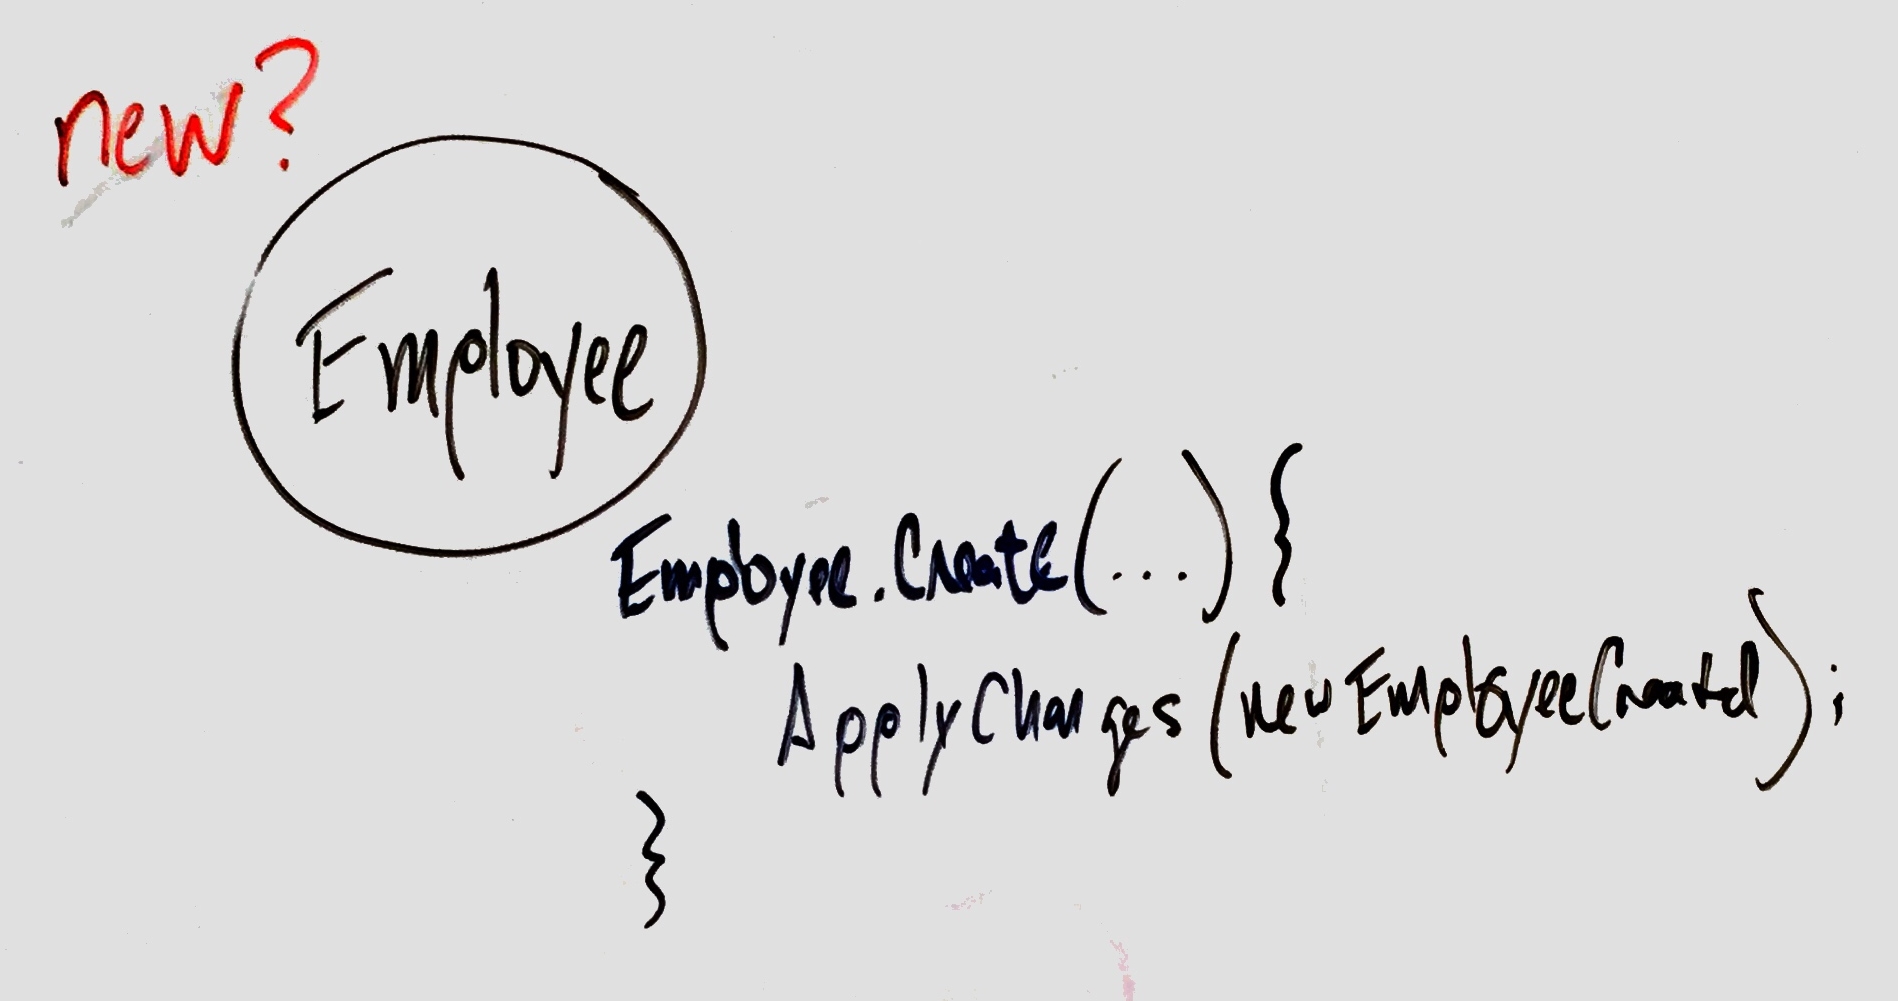 new?
Employee
Employee.Create(...) {
ApplyChanges(new EmployeeCreated);
}